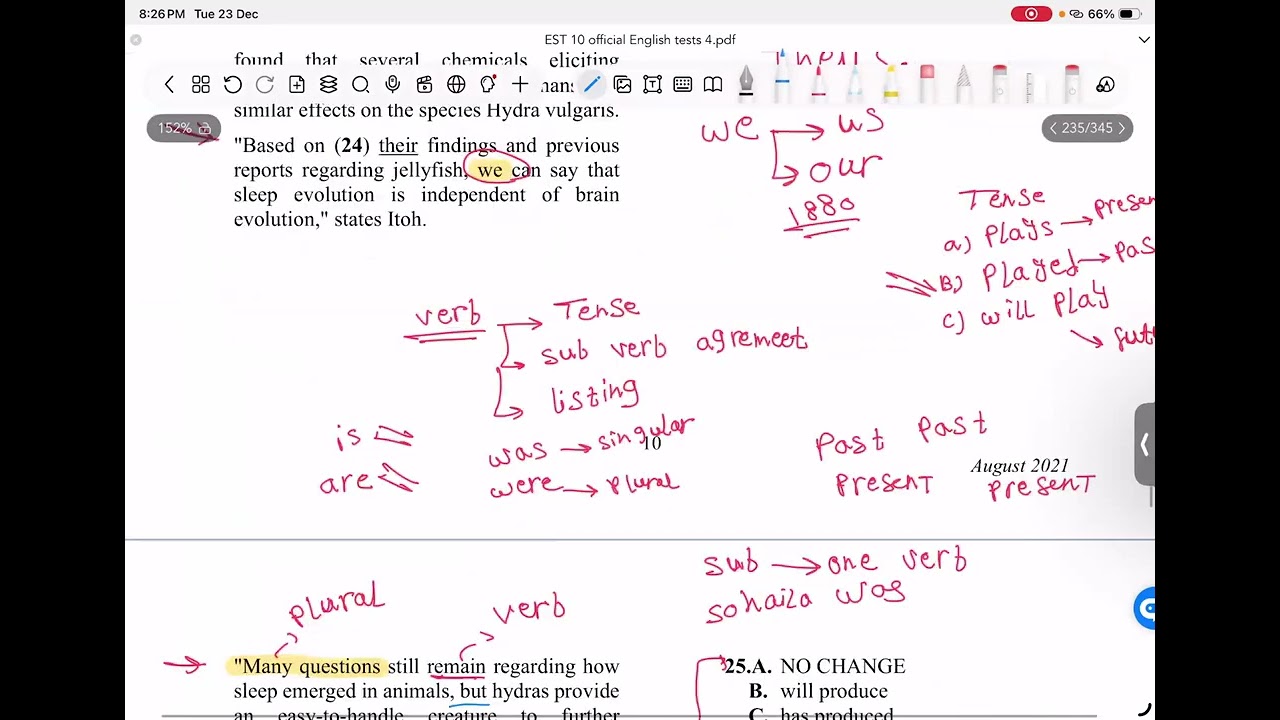 8:26 PM Tue 23 Dec
66%
EST 10 official English tests 4.pdf
found that several chemicals eliciting
similar effects on the species Hydra vulgaris.
152%
235/345
"Based on (24) their findings and previous
reports regarding jellyfish, we can say that
sleep evolution is independent of brain
evolution," states Itoh.
we → us
our
1880
Tense
a) plays → presen
B) played → pas
c) will play
verb
Tense
sub verb agremeet
listing
is
are
was → singular
were → plural
10
past past
August 2021
present present
sub → one verb
sohaila was
plural
verb
"Many questions still remain regarding how
sleep emerged in animals, but hydras provide
an easy-to-handle creature to further
25.A. NO CHANGE
B. will produce
C. has produced